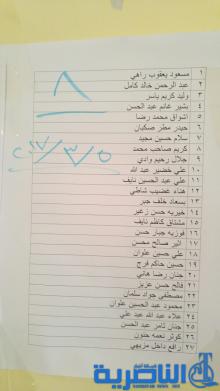 ١ مسعود يعقوب راهي
٢ عبد الرحمن خالد كامل
٣ وليد كريم ياسر
٤ بشير غانم عبد الحسن
٥ اشواق محمد رضا
٦ حيدر مطر صكبان
٧ سلام حسين مجيد
٨ كريم صاحب محمد
٩ جلال رحيم وادي
١٠ علي خضير عبد الله
١١ علي عبد الحسين نايف
١٢ هناء غضيب شاطي
١٣ بسعاد خلف جبر
١٤ خيريه حسن زغير
١٥ مشتاق كاظم نايف
١٦ فوزيه جبار حسن
١٧ اثير صالح محسن
١٨ علي حسين علوان
١٩ حسين حاكم فرج
٢٠ جنان رضا هاني
٢١ فالح حسن عزيز
٢٢ مصطفى جواد سلمان
٢٣ محمود عبد الحسين علوان
٢٤ علاء عبد الله عبد علي
٢٥ جنان ثامر عبد الحسن
٢٦ كوثر نعمه حنون
٢٧ رافع داخل مزيهي
٨
٢٠١٧/٣/٥
الناصرية